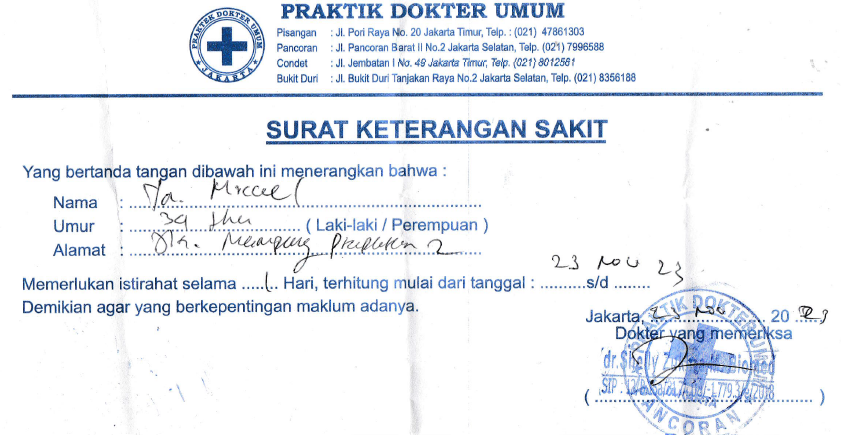 PRAKTIK DOKTER UMUM
JAKARTA
PRAKTIK DOKTER UMUM
Pisangan : Jl. Pori Raya No. 20 Jakarta Timur, Telp. : (021) 47861303
Pancoran : Jl. Pancoran Barat II No.2 Jakarta Selatan, Telp. (021) 7996588
Condet : Jl. Jembatan I No. 49 Jakarta Timur, Telp. (021) 8012561
Bukit Duri : Jl. Bukit Duri Tanjakan Raya No.2 Jakarta Selatan, Telp. (021) 8356188
SURAT KETERANGAN SAKIT
Yang bertanda tangan dibawah ini menerangkan bahwa :
Nama :
Umur : 39 thn ( Laki-laki / Perempuan )
Alamat : Jln. Mampang Prapatan 2
Memerlukan istirahat selama 1 Hari, terhitung mulai dari tanggal : 23 Nov 23 s/d
Demikian agar yang berkepentingan maklum adanya.
Jakarta, 23 Nov 2023
Dokter yang memeriksa
PRAKTIK DOKTER UMUM
PANCORAN